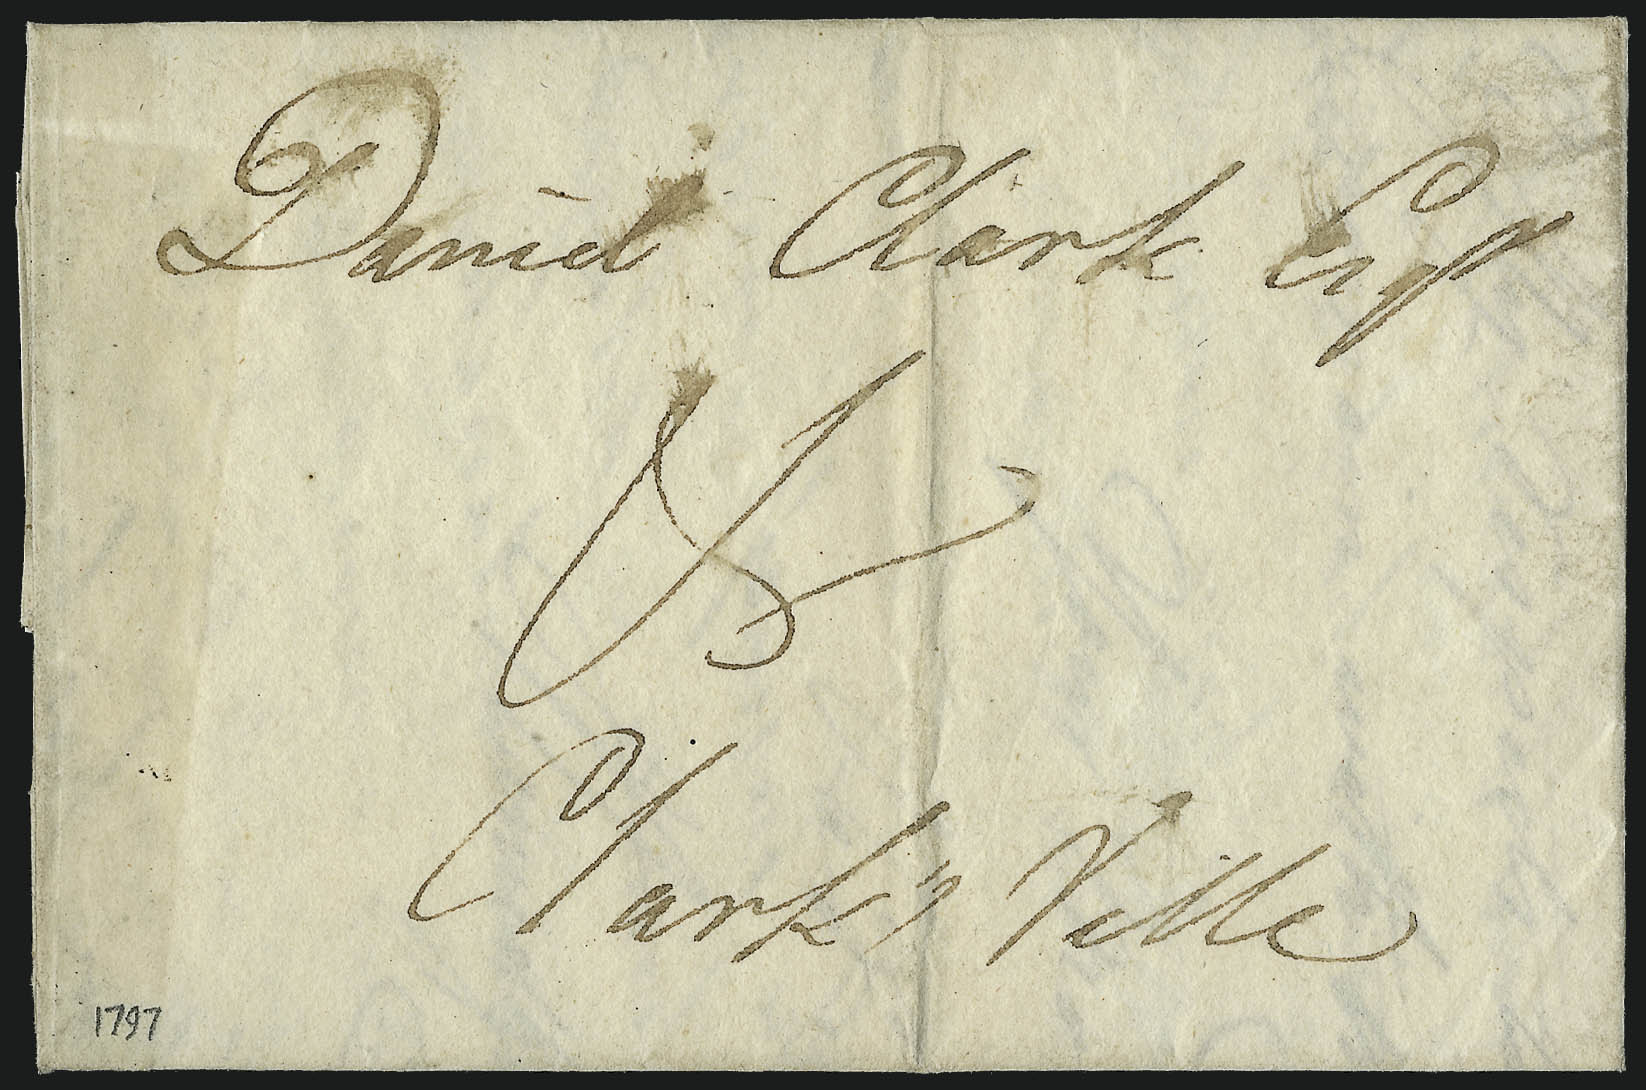 Daniel Clark Esqr
Clark's Ville
1797